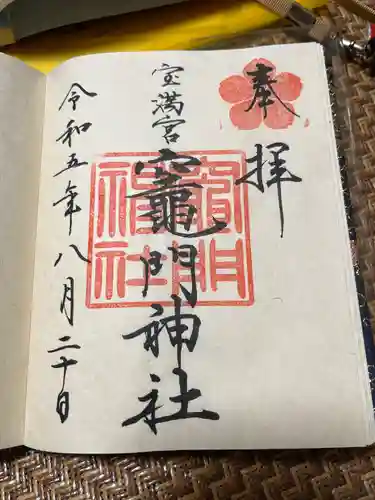 奉拝
宝満宮
竈門神社
令和五年八月二十日